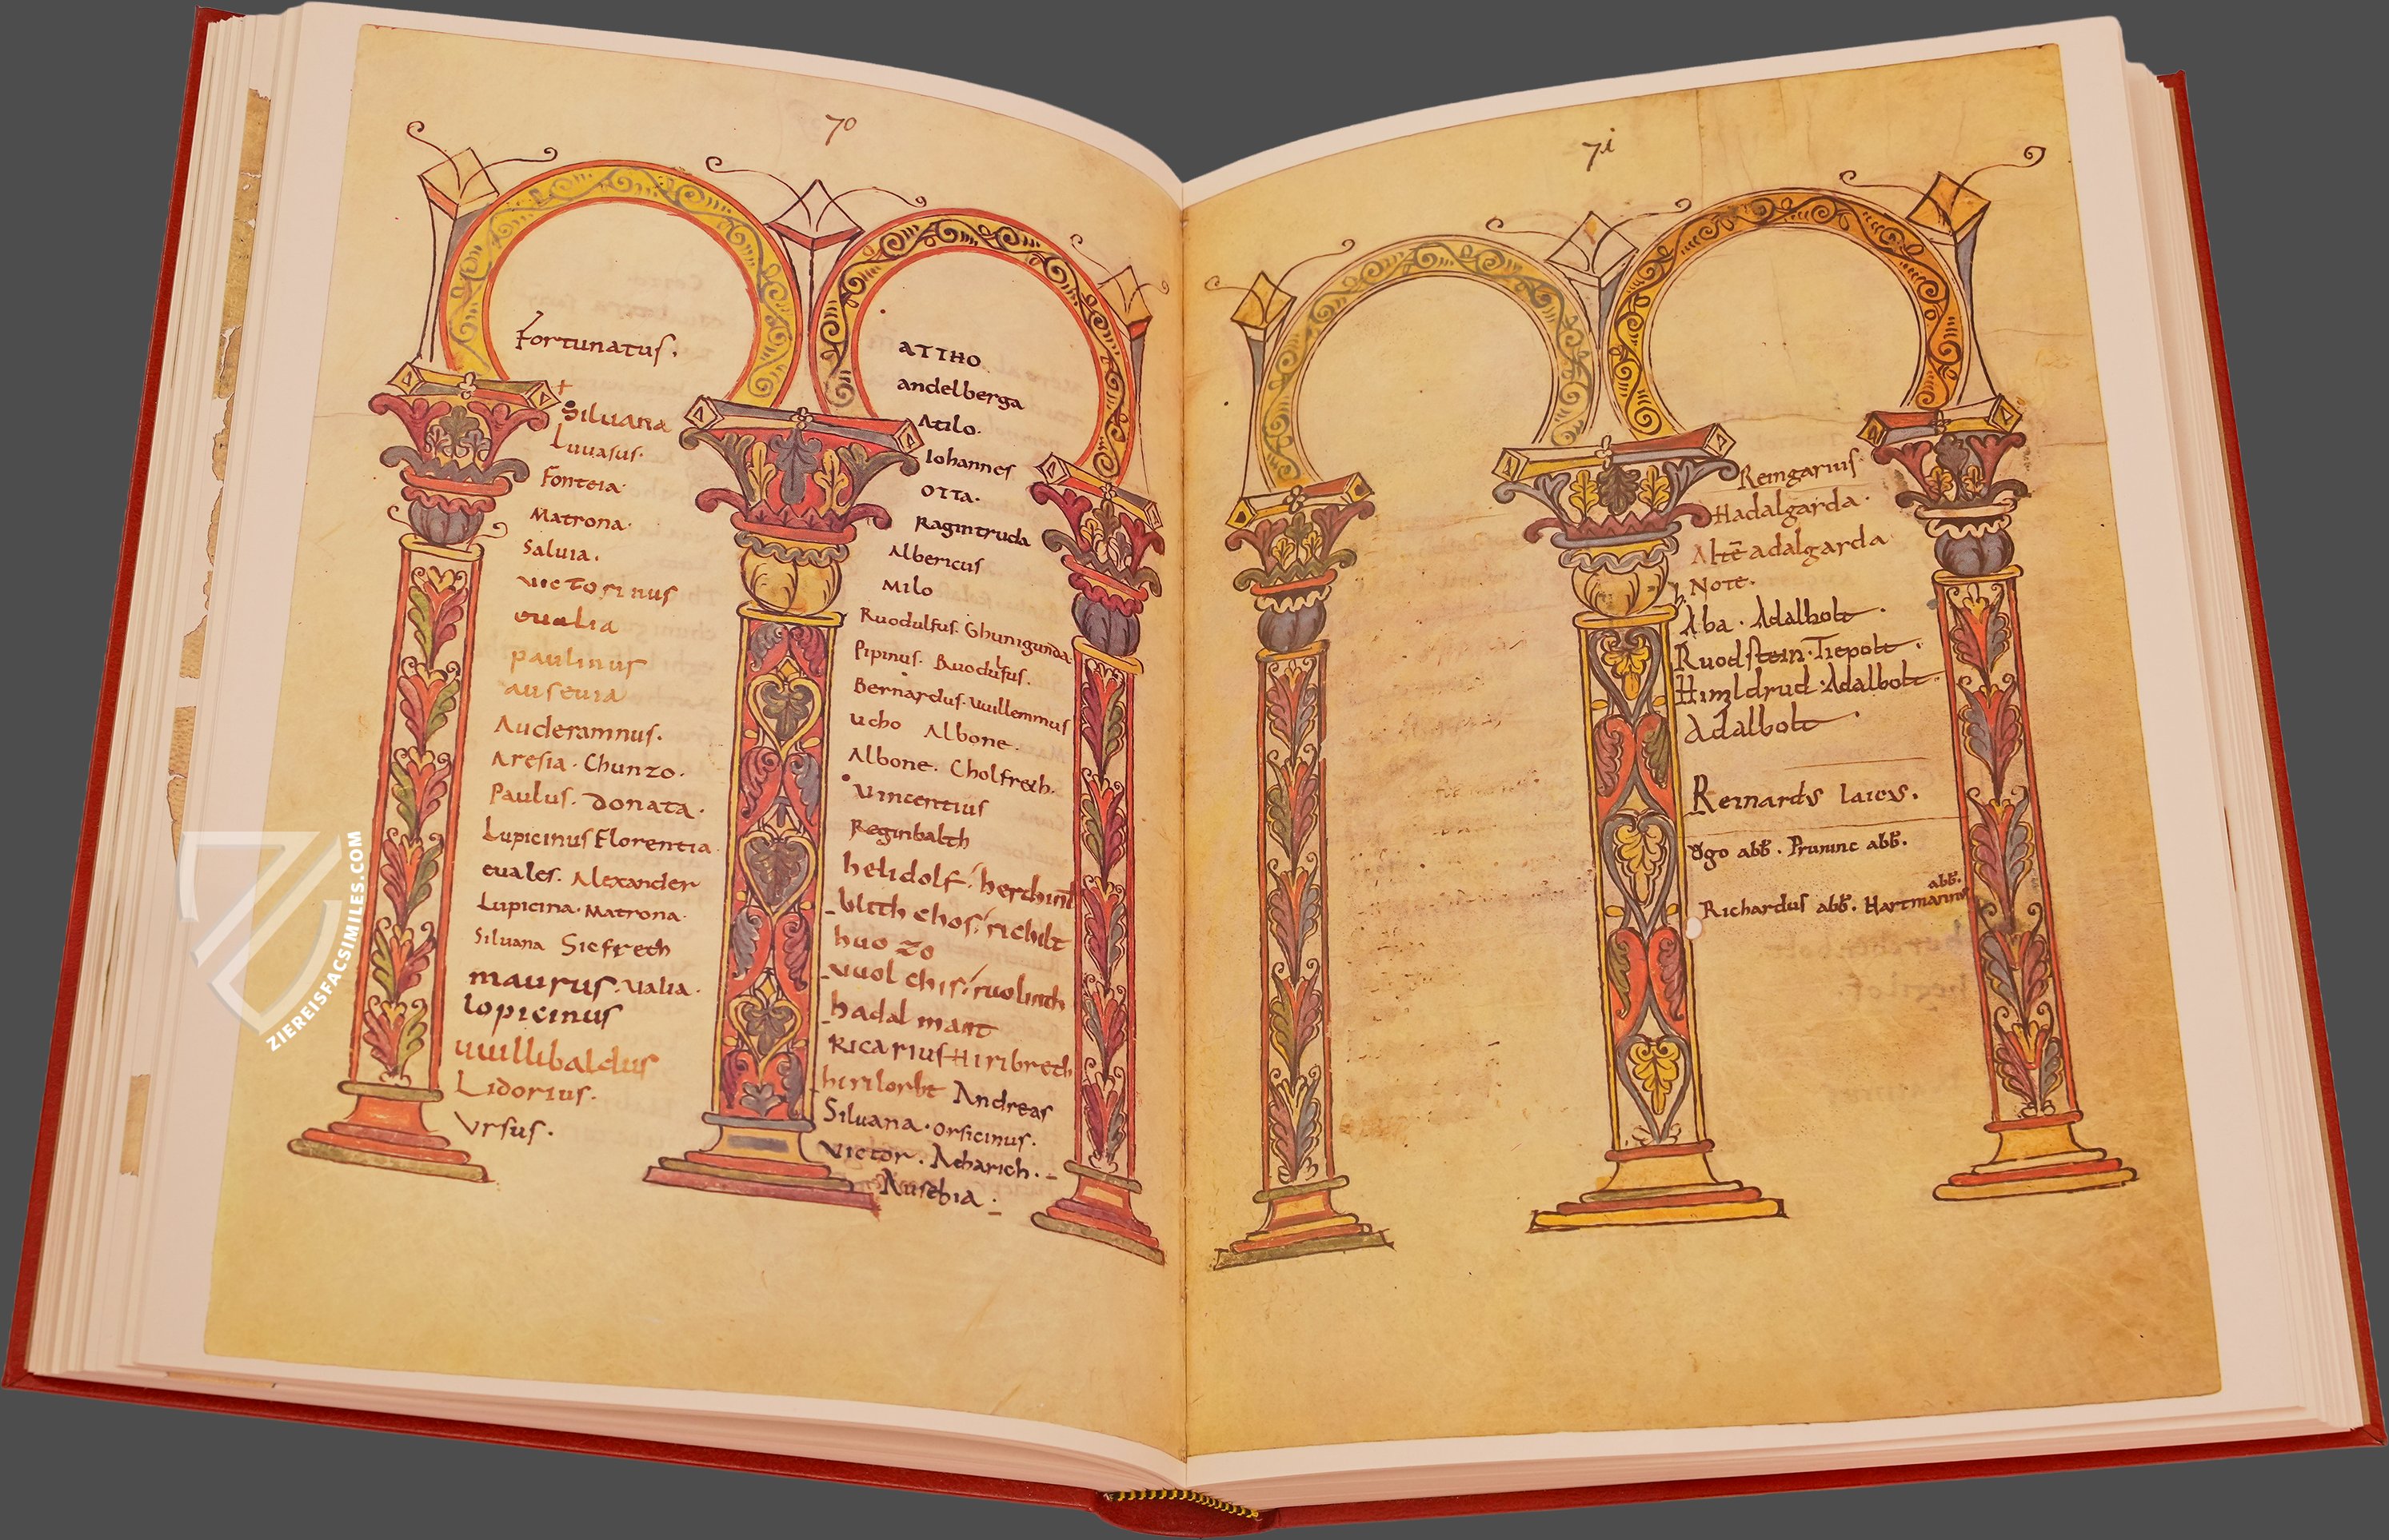 70
Fortunatus.
Siluana
Luuasus.
Fonteia
Matrona.
Saluia.
uictorinus
eualia
paulinus
auseuia
Auderamnus.
Aresia. Chunzo.
Paulus. Donata.
Lupicinus Florentia
euales. Alexander
Lupicina. Matrona.
Siluana Siefreth
maurus. Ualia.
lopicinus
uuillibaldus
Lidorius.
Vrsus.
ATTHO
andelberga
Atilo.
Iohannes
OTTA.
Ragintruda
Albericus
Milo
Ruodulfus. Ghunigunda.
Pipinus. Ruodulfus.
Bernardus. Uuillemmus
Ucho Albone.
Albone. Cholfreth.
Uincentius
Reginbalth
helidolf. 
blith chos. richilt
huo zo
uuol chis. ruolinth
hadal mant
Ricarius Hiribreth
Andreas
Siluana. orsicinus.
Victor. Acharich.
Ausebia.
71
Remgarius.
Hadalgarda.
Altē adalgarda
Note.
Aba. Adalbolt.
Ruodstein. Tiepolt.
Himldrud. Adalbolt.
Adalbolt.
Reinards laics.
abb̄. Pruninc abb̄.
abb̄.
Richardus abb̄. Hartmannus
ZIEREISFACSIMILES.COM